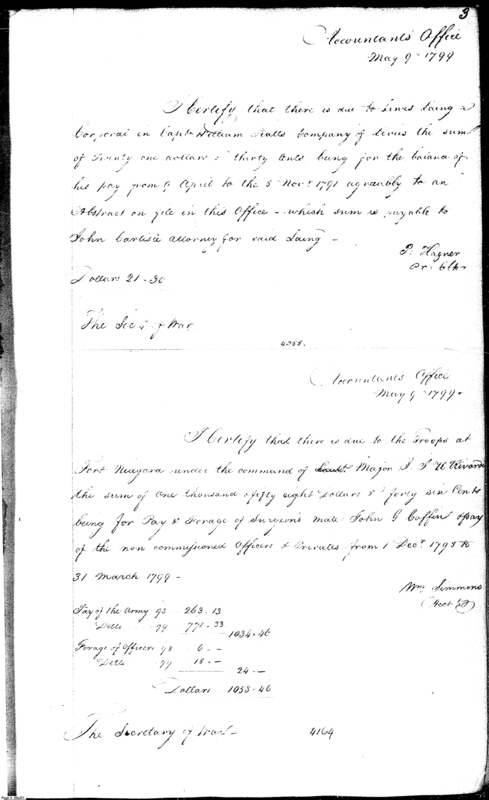 3
Accountants Office
May 9th 1799
I Certify that there is due to Lewis Laing a
Corporal in Capt William Company of Levies the sum
of Twenty one dollars & thirty Cents being for the balance of
his pay from 9 April to the 5 Novr 1791 agreeably to an
Abstract on file in this Office - which sum is payable to
John Carlisle attorney for said Laing -
P. Hagner
Pr: Clk
Dollars 21.30
The Secy of War
4055.
Accountants Office
May 9th 1799
I Certify that there is due to the Troops at
Fort Niagara under the command of Major J. J. U Rivardi
the sum of One thousand & fifty eight Dollars & forty six Cents
being for Pay & Forage of Surgeons mate John G Coffin & pay
of the non commissioned Officers & Privates from 1 Decr 1798 to
31 March 1799 -
Wm Simmons
Acct
Pay of the Army 98 263.13
Ditto 99 771.33
1034.46
Forage of Officers 98 6.-
Ditto 99 18.-
24.-
Dollars 1058.46
The Secretary of War - 4164